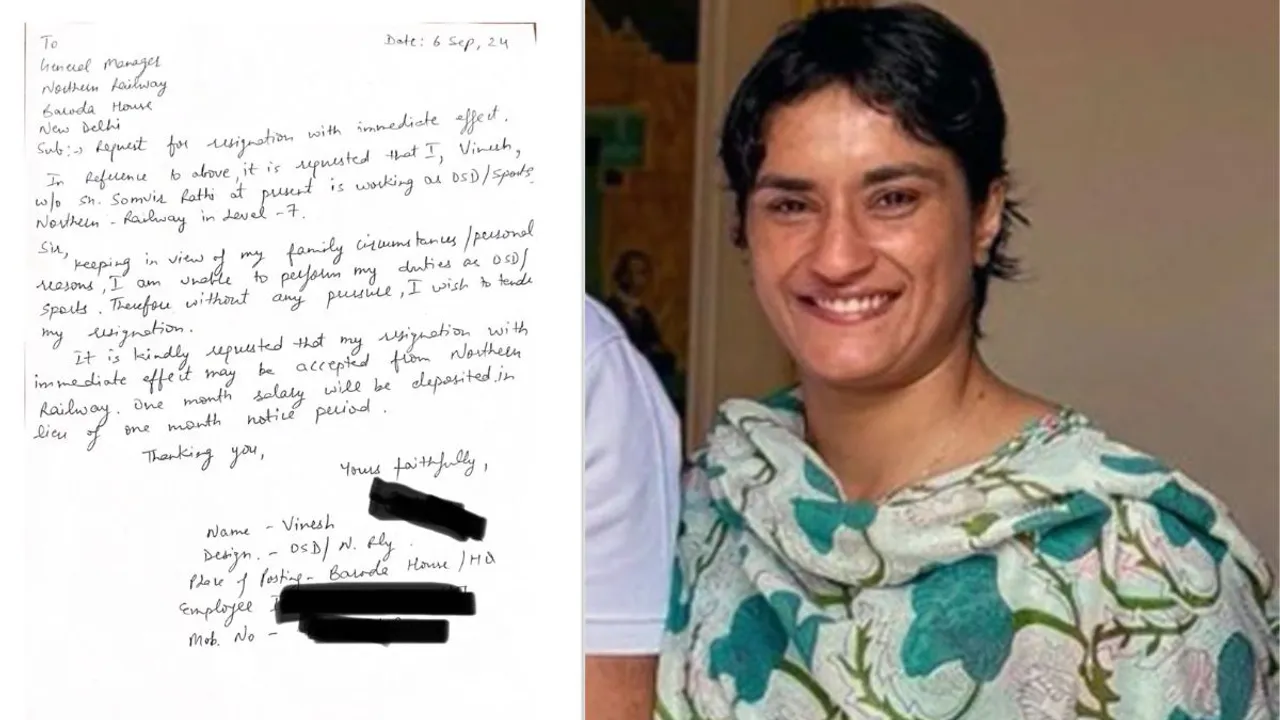 To
Date: 6 Sep, 24
General Manager
Northern Railway
Baroda House
New Delhi
Sub:-> Request for resignation with immediate effect.
In Reference to above, it is requested that I, Vinesh,
w/o Sh. Somvir Rathi at present is working as OSD/Sports
Northern - Railway in Level -7.
Sir,
keeping in view of my family circumstances/personal
reasons, I am unable to perform my duties as OSD/
Sports. Therefore without any pressure, I wish to tende
my resignation.
It is kindly requested that my resignation with
immediate effect may be accepted from Northern
Railway. One month salary will be deposited in
lieu of one month notice period.
Thanking you,
Yours faithfully,
Name - Vinesh
Design. - OSD/ N. Rly.
Place of Posting - Baroda House / HQ
Employee
Mob. No -